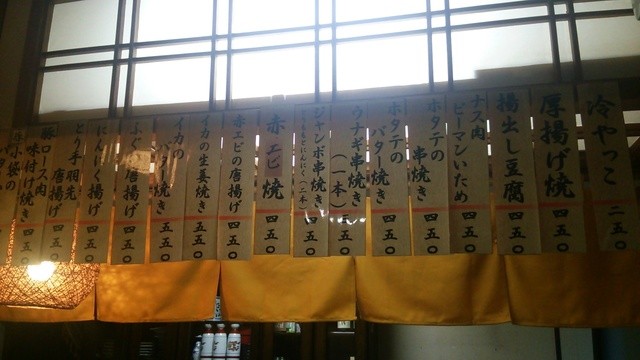 冷やっこ 二五〇
厚揚げ焼 四五〇
揚出し豆腐 四五〇
ナス肉ピーマンいため 四五〇
ホタテの串焼き 四五〇
ホタテのバター焼き 四五〇
ウナギ串焼き（一本） 五〇
ジャンボ串焼き 四五〇
赤エビ焼 四五〇
赤エビの唐揚げ 四五〇
イカの生姜焼き 四五〇
イカのバター焼き 四五〇
ふぐ唐揚げ 四五〇
にんにく揚げ 四五〇
とり手羽先唐揚げ 四五〇
豚ロース肉味付け焼き 四五〇